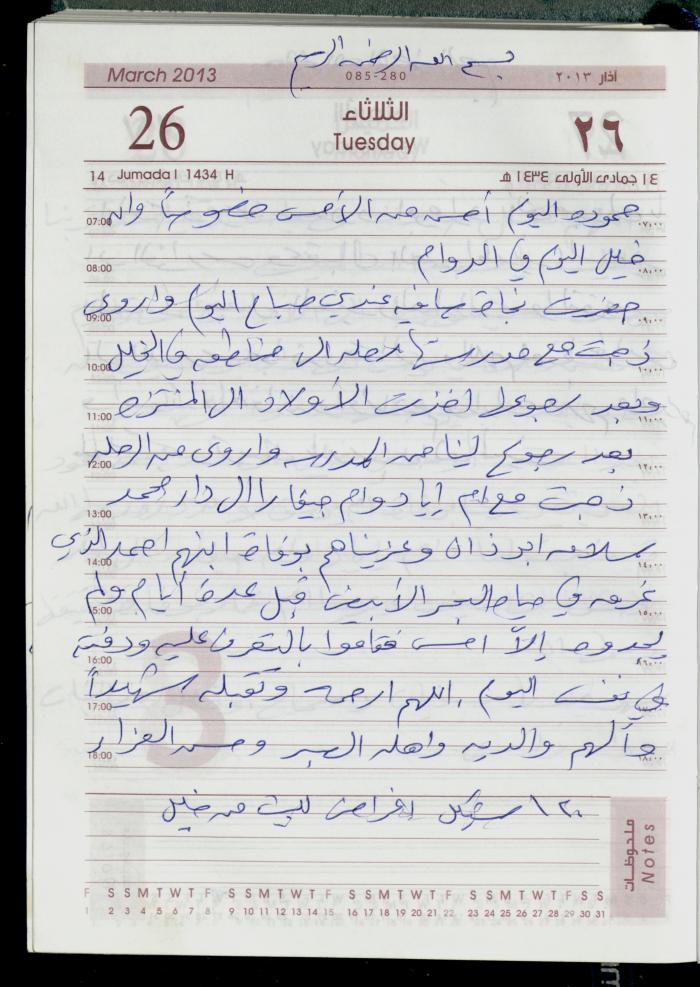 بسم الله الرحمن الرحيم
March 2013 085-280 آذار ٢٠١٣
26 الثلاثاء ٢٦
Tuesday
14 Jumada I 1434 H ١٤ جمادى الأولى ١٤٣٤ هـ
حموده اليوم أحسن من الأمس خصوصاً وان
07:00 ٠٧:٠٠
خليل اليوم في الدوام
08:00 ٠٨:٠٠
حضرت نجاة صافيه عندي صباح اليوم واروى
09:00 ٠٩:٠٠
ذهبت مع مدرستها رحله الى مناطق في الخليل
10:00 ١٠:٠٠
وبعد رجوعي اخذت الأولاد الى المنتزه
11:00 ١١:٠٠
بعد رجوع لينا من المدرسه واروى من الرحله
12:00 ١٢:٠٠
ذهبت مع ام إياد الى دار محمد
13:00 ١٣:٠٠
سلامه ابو وعزيناهم بوفاة ابنهم احمد الذي
14:00 ١٤:٠٠
غرق في مياه البحر الأبيض قبل عدة أيام ولم
15:00 ١٥:٠٠
يجدوه إلاّ امس فقاموا بالتعرف عليه ودفنه
16:00 ١٦:٠٠
في نفس اليوم، اللهم ارحمه وتقبله شهيداً
17:00 ١٧:٠٠
وألهم والديه واهله الصبر وحسن العزاء
18:00 ١٨:٠٠
١٢٠ شيكل من خليل
ملحوظات Notes
F S S M T W T F S S M T W T F S S M T W T F S S M T W T F S S
1 2 3 4 5 6 7 8 9 10 11 12 13 14 15 16 17 18 19 20 21 22 23 24 25 26 27 28 29 30 31